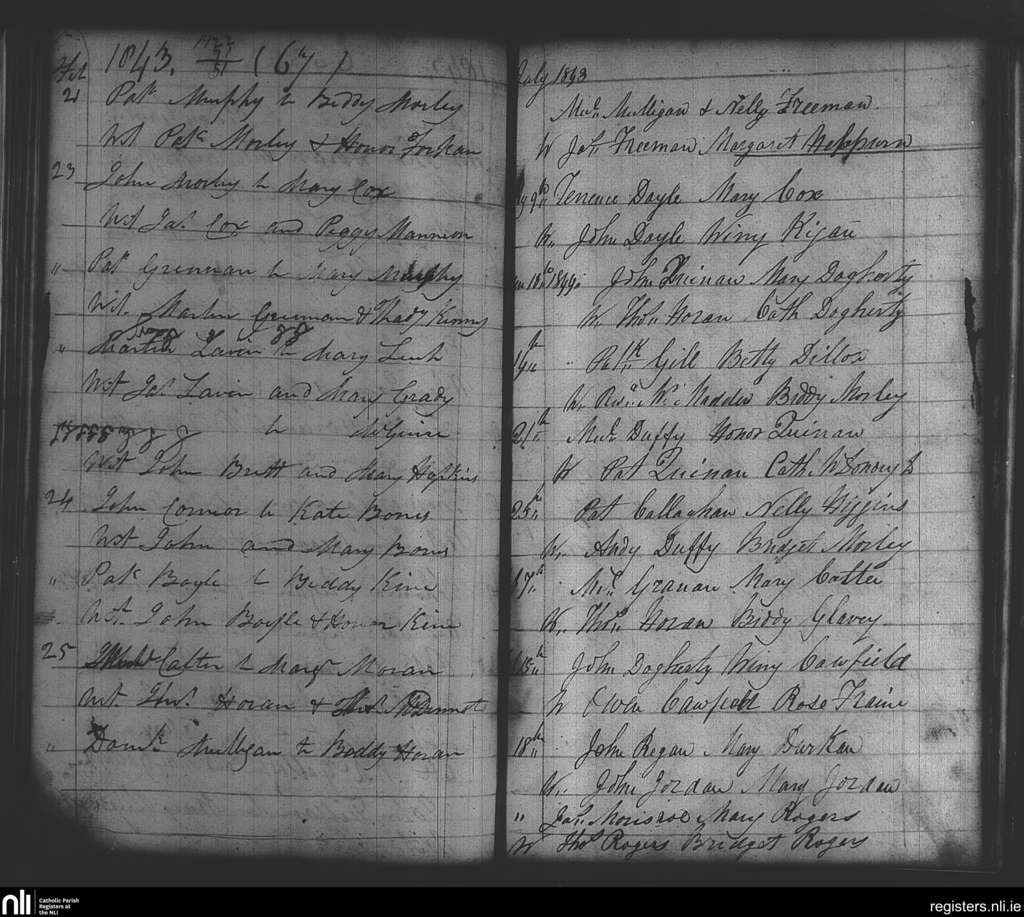 1843. (67)
Feb
21 Patk Murphy to Biddy Morley
Wt Patk Morley & Honor Forkan
23 John Morley to Mary Cox
Wt Jas. Cox and Peggy Mannion
" Patk Grennan to Mary Murphy
Wt. Martin Grennan & Thady Kenny
" Martin Lavin to Mary
Wt Jas Lavin and Mary Grady
to McGuire
Wt John Brett and Mary Hopkins
24 John Connor to Kate Bones
Wt John and Mary Bones
" Patk Boyle to Biddy Kine
Wt. John Boyle & Honor Kine
25 Calter to Margt Moran
Wt. Thos. Horan & McDermott
" Domk. Mulligan to Biddy Horan
July 1843
Michl. Mulligan & Nelly Freeman
W Jas. Freeman Margaret Hepburn
9th Terence Doyle Mary Cox
W. John Doyle Winy Kigan
18th 1844. John Quinan Mary Dogherty
W. Thos. Horan Cath Dogherty
19th " Patk. Gill Betty Dillon
W. Madden Biddy Morley
21st Michl. Duffy Honor Quinan
W Pat Quinan Cath.
25th Pat Callaghan Nelly Higgins
W. Andy Duffy Bridget Morley
7th Ml. Granan Mary Catter
W. Thos. Horan Biddy Glavey
15th John Dogherty Winy Cawfield
W Owen Cawfield Rose Fraine
18th John Regan Mary Durkan
W. John Jordan Mary Jordan
" Jas. Morisroe Mary Rogers
W Thos Rogers Bridget Rogers
nli Catholic Parish Registers at the NLI
registers.nli.ie